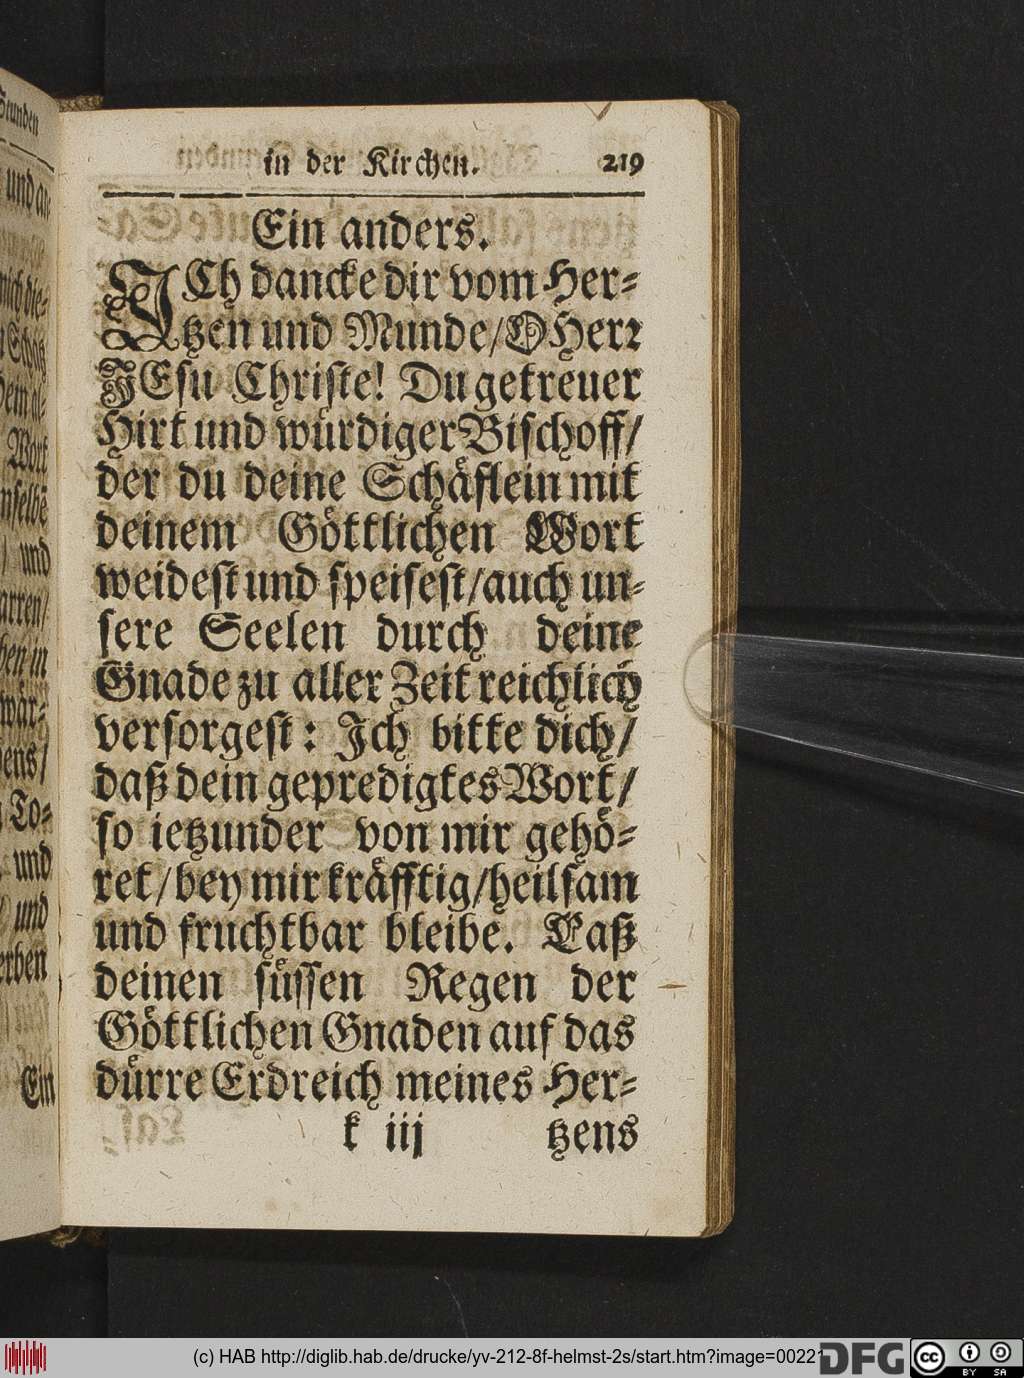 Stunden
und an-
in der Kirchen. 219
Ein anders.
ICh dancke dir vom Her-
tzen und Munde/O Herr
JEsu Christe! Du getreuer
Hirt und würdiger Bischoff/
der du deine Schäflein mit
deinem Göttlichen Wort
weidest und speisest/auch un-
sere Seelen durch deine
Gnade zu aller Zeit reichlich
versorgest: Ich bitte dich/
daß dein gepredigtes Wort/
so ietzunder von mir gehö-
ret/bey mir kräfftig/heilsam
und fruchtbar bleibe. Laß
deinen süssen Regen der
Göttlichen Gnaden auf das
dürre Erdreich meines Her-
k iij tzens
Wort
/ und
To-
und
/ und
Ein
(c) HAB http://diglib.hab.de/drucke/yv-212-8f-helmst-2s/start.htm?image=00221
DFG
cc BY SA